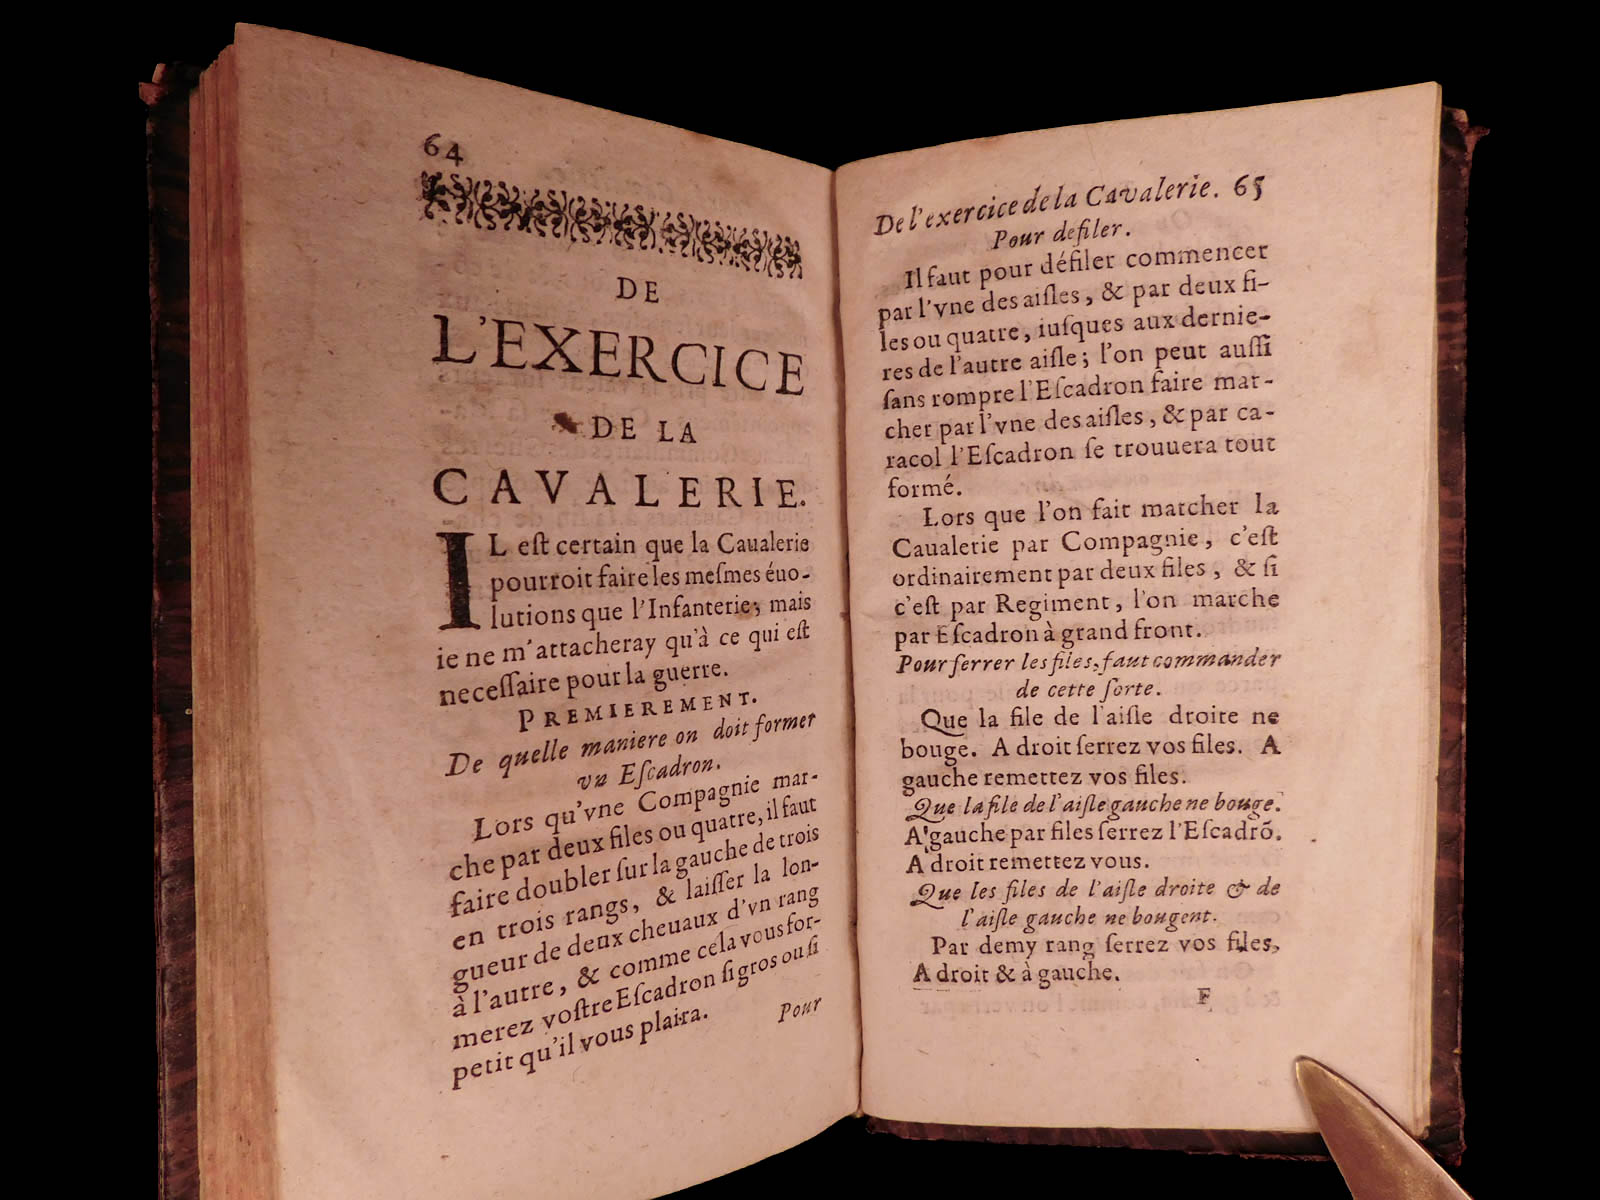 64
DE
L'EXERCICE
DE LA
CAVALERIE.
IL eſt certain que la Caualerie
pourroit faire les meſmes éuo-
lutions que l'Infanterie, mais
ie ne m'attacheray qu'à ce qui eſt
neceſſaire pour la guerre.
PREMIEREMENT.
De quelle maniere on doit former
vn Eſcadron.
Lors qu'vne Compagnie mar-
che par deux files ou quatre, il faut
faire doubler ſur la gauche de trois
en trois rangs, & laiſſer la lon-
gueur de deux cheuaux d'vn rang
à l'autre, & comme cela vous for-
merez voſtre Eſcadron ſi gros ou ſi
petit qu'il vous plaira.
Pour
De l'exercice de la Cavalerie. 65
Pour defiler.
Il faut pour défiler commencer
par l'vne des aiſles, & par deux fi-
les ou quatre, iuſques aux dernie-
res de l'autre aiſle; l'on peut auſſi
ſans rompre l'Eſcadron faire mar-
cher par l'vne des aiſles, & par ca-
racol l'Eſcadron ſe trouuera tout
formé.
Lors que l'on fait matcher la
Caualerie par Compagnie, c'eſt
ordinairement par deux files, & ſi
c'eſt par Regiment, l'on marche
par Eſcadron à grand front.
Pour ſerrer les files, faut commander
de cette ſorte.
Que la file de l'aiſle droite ne
bouge. A droit ſerrez vos files. A
gauche remettez vos files.
Que la file de l'aiſle gauche ne bouge.
A gauche par files ſerrez l'Eſcadrõ.
A droit remettez vous.
Que les files de l'aiſle droite & de
l'aiſle gauche ne bougent.
Par demy rang ſerrez vos files,
A droit & à gauche.
F